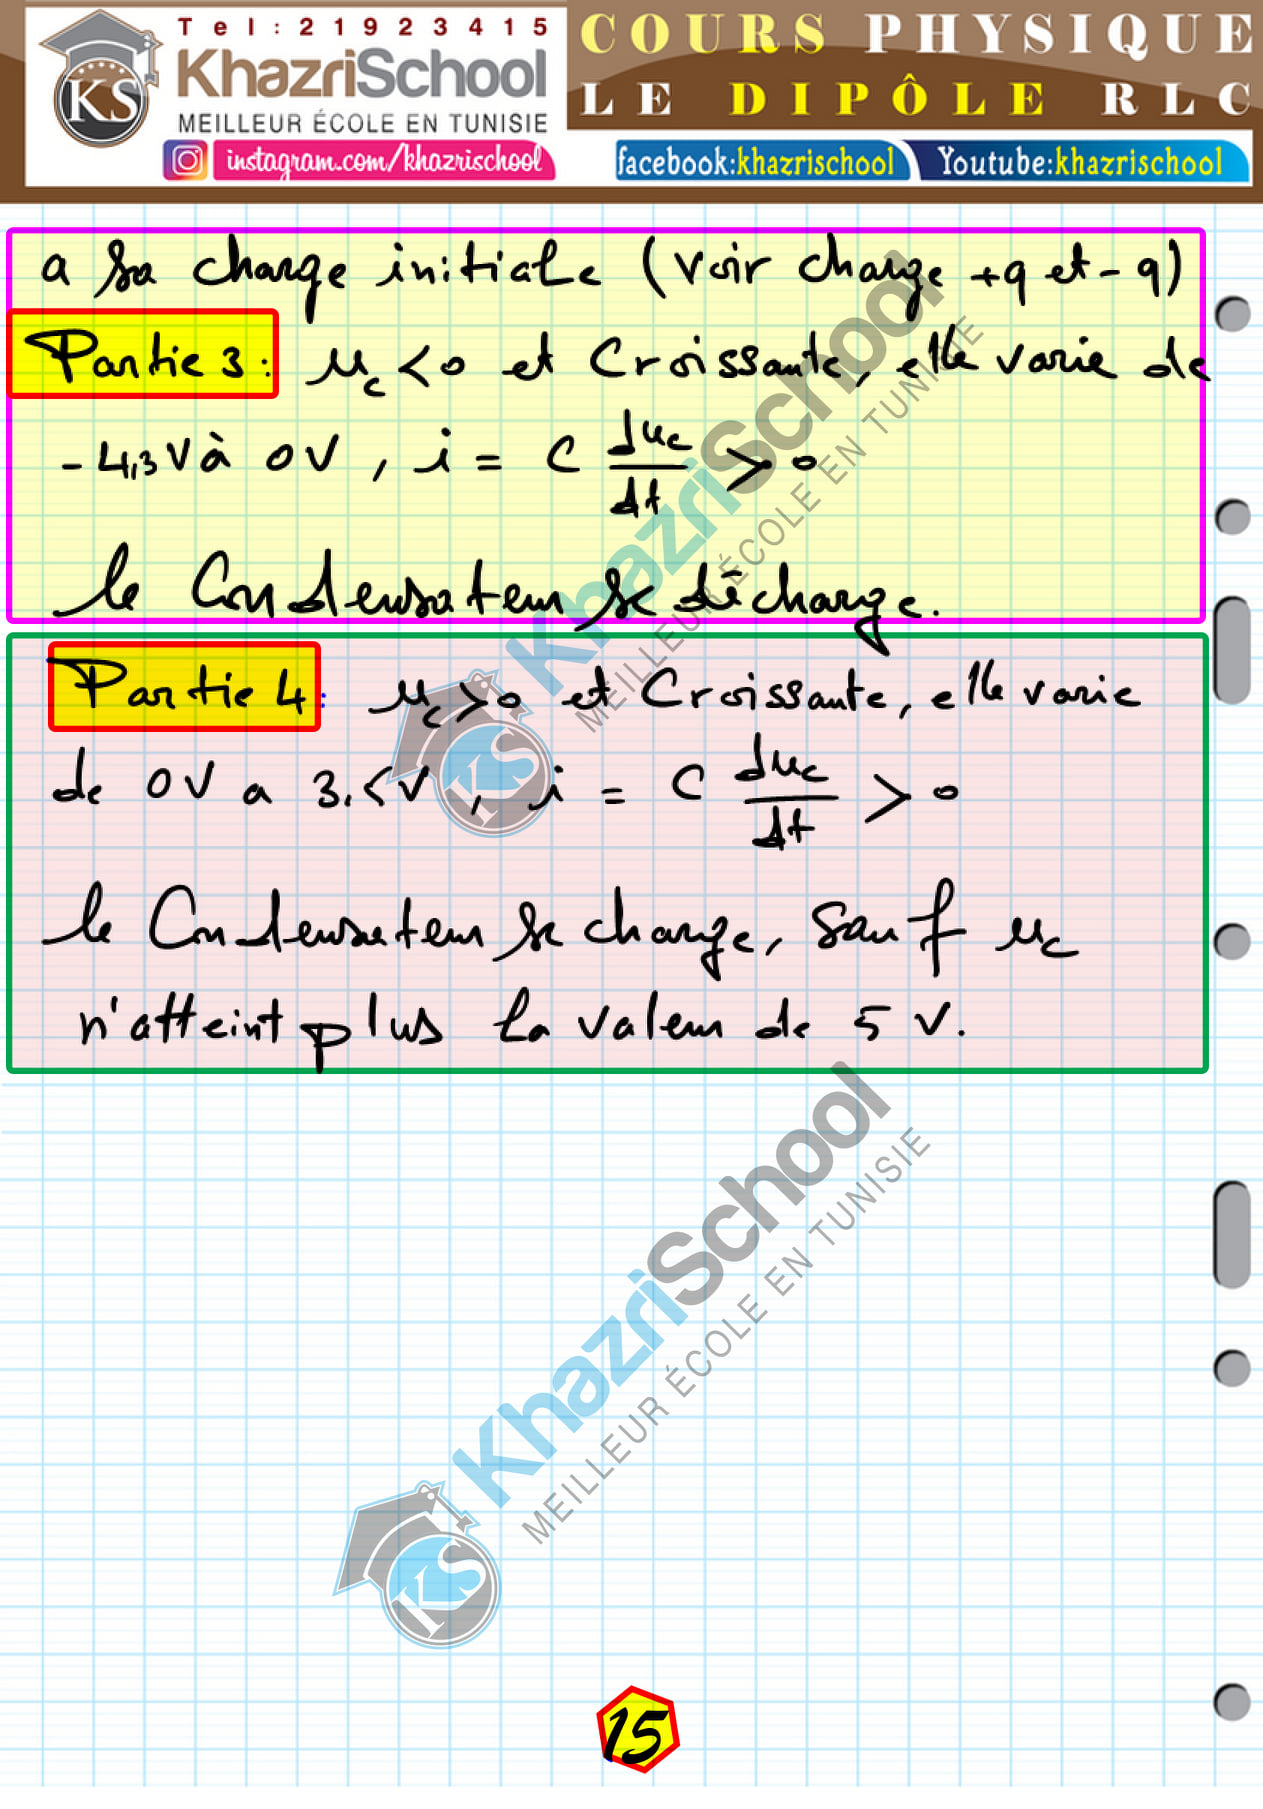 Tel:21923415
KhazriSchool
MEILLEUR ÉCOLE EN TUNISIE
instagram.com/khazrischool
COURS PHYSIQUE
LE DIPÔLE RLC
facebook:khazrischool
Youtube:khazrischool
KS
a sa charge initiale (voir charge +q et -q)
Partie 3: uc < 0 et Croissante, elle varie de
- 4,3V à 0V, i = C duc/dt > 0
le Condensateur se décharge.
Partie 4: uc > 0 et Croissante, elle varie
de 0V a V, i = C duc/dt > 0
le Condensateur se charge, sauf uc
n'atteint plus la valeur de 5V.
KhazriSchool
MEILLEUR ÉCOLE EN TUNISIE
KS
KhazriSchool
MEILLEUR ÉCOLE EN TUNISIE
KS
15